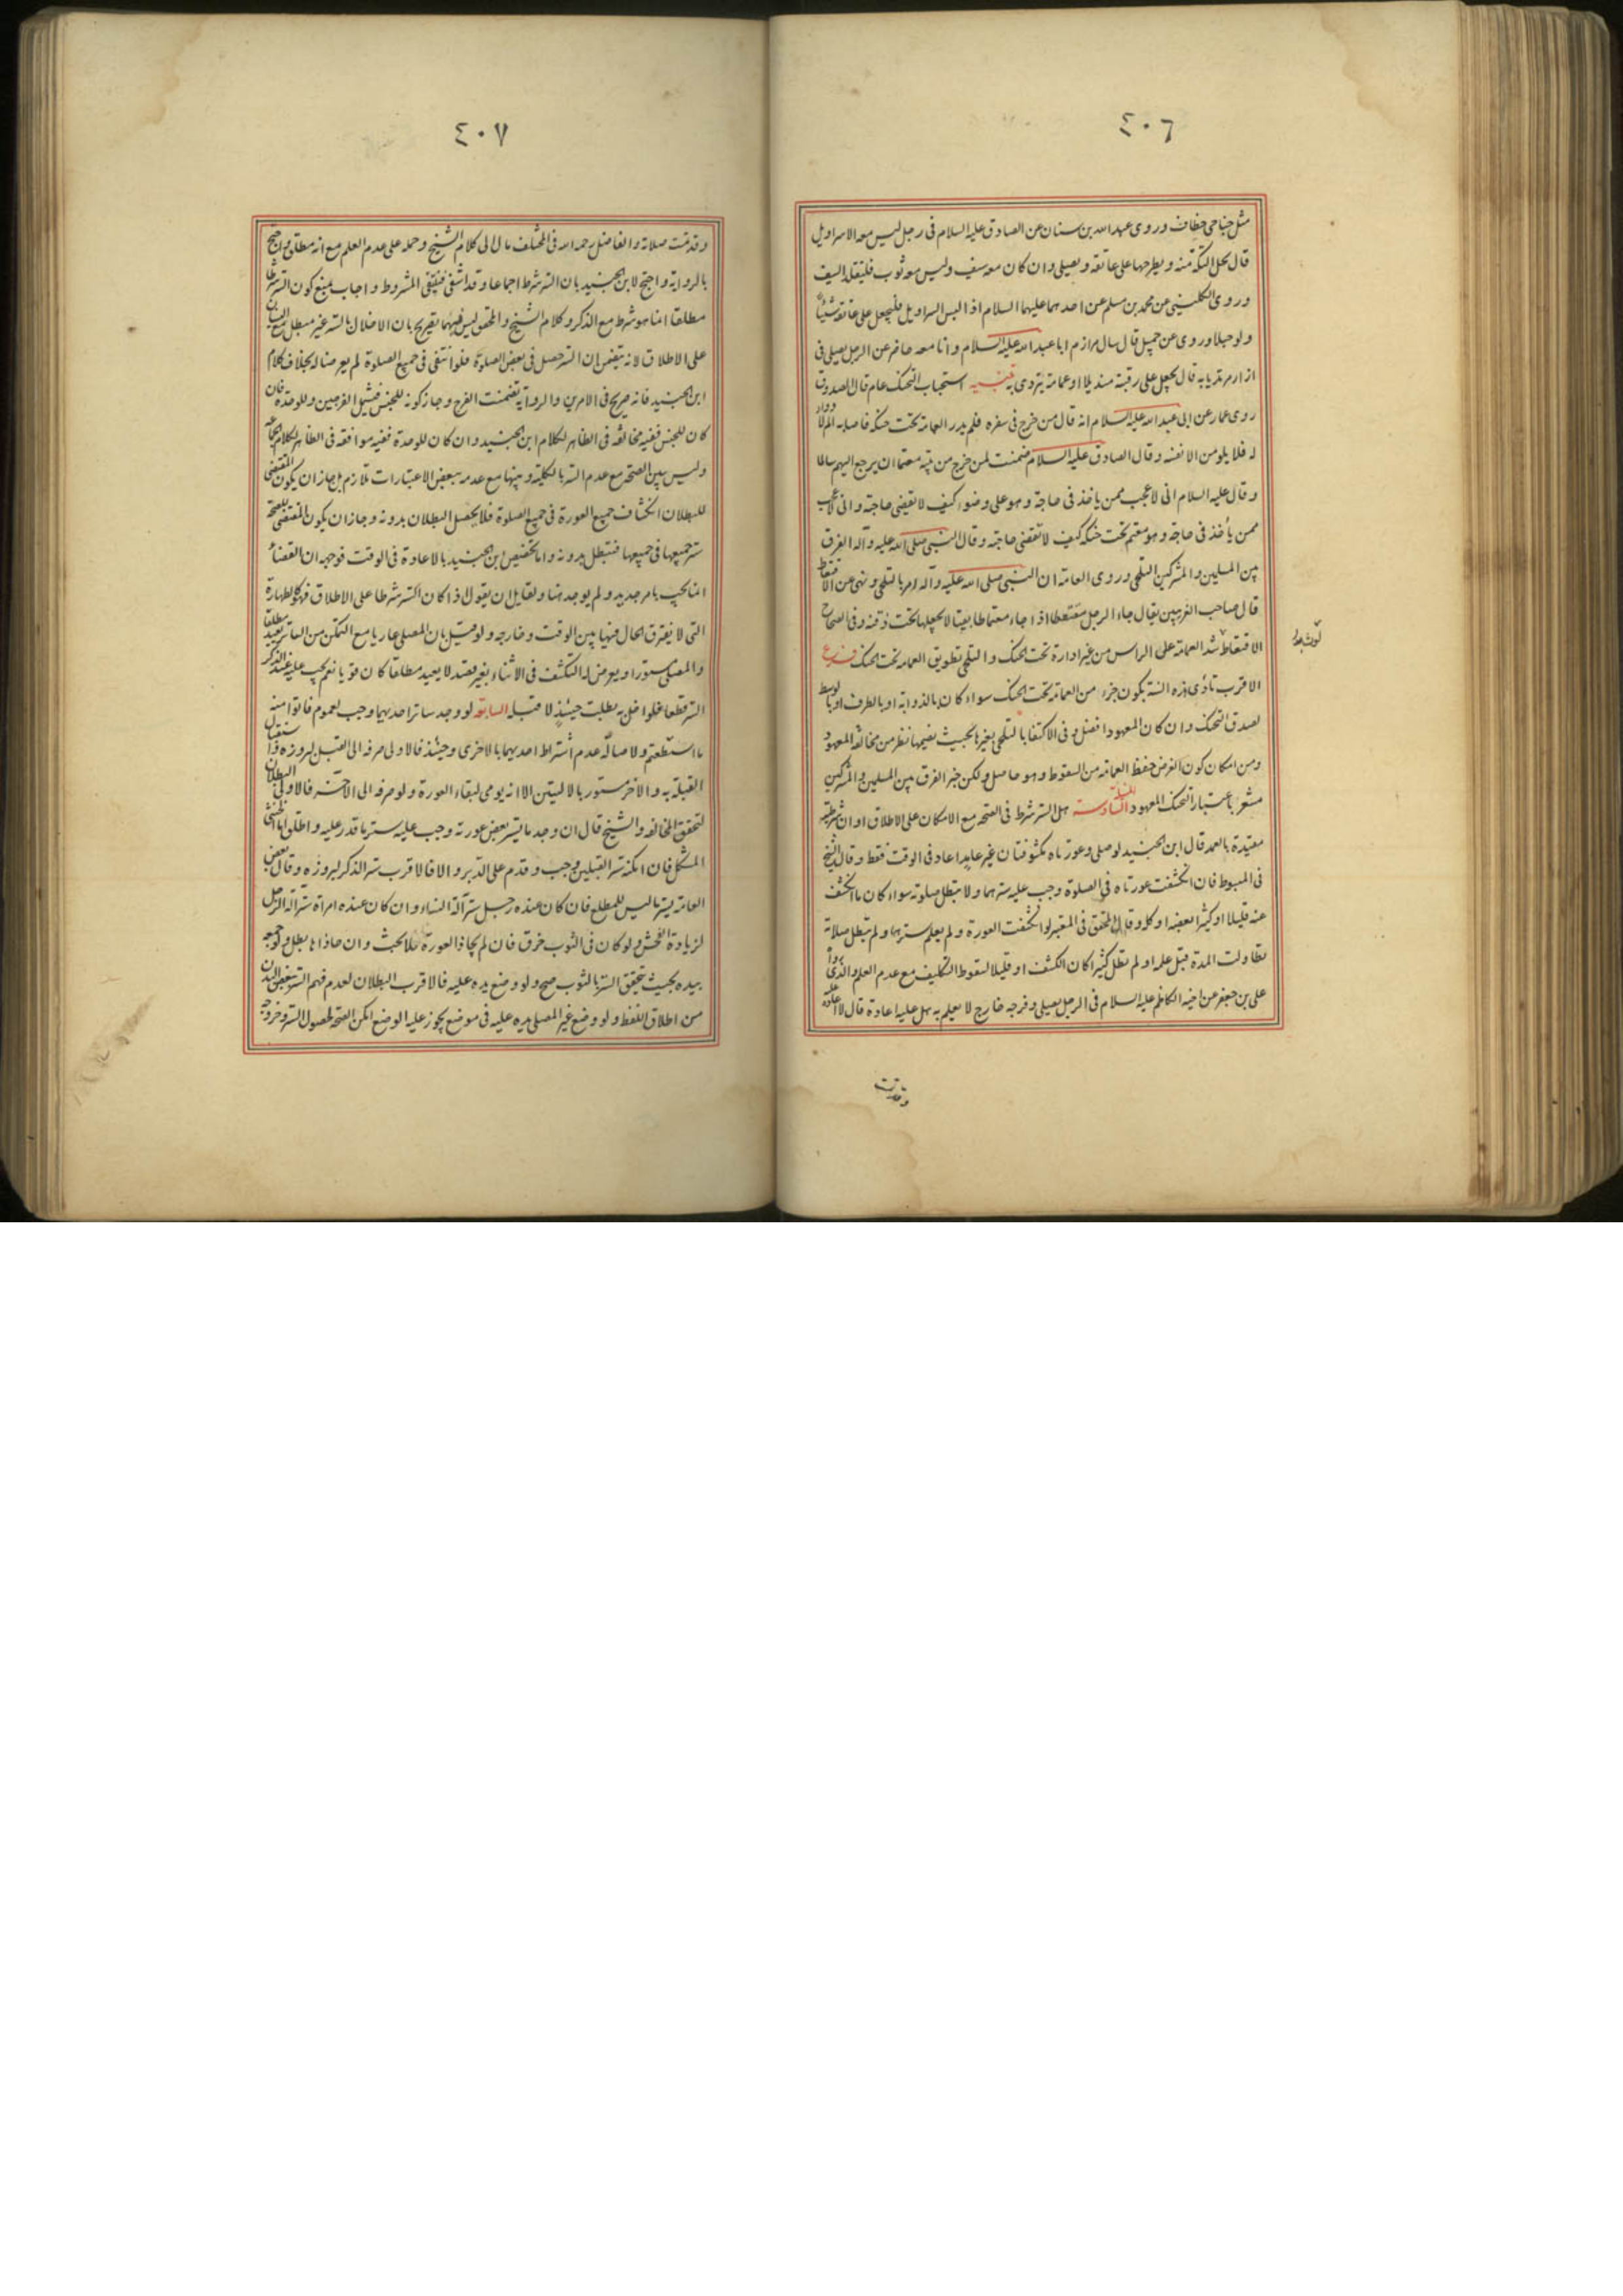 ٤٠٦
مثل جناحى خطاف وروى عبد الله بن سنان عن الصادق عليه السلام فى رجل ليس معه الا سراويل
قال يحل التكة منه ويطرحها على عاتقه ويصلى وان كان معه سيف وليس معه ثوب فليتقلد السيف
وروى الكلينى عن محمد بن مسلم عن احدهما عليهما السلام اذا لبس السراويل فليجعل على عاتقه شيئا
ولو حبلا وروى عن جميل قال سال مرازم ابا عبد الله عليه السلام وانا معه حاضر عن الرجل يصلى فى
ازار مرتديا به قال يجعل على رقبته منديلا او عمامة يتردى به تنبيه استحباب التحنك عام قال الصدوق
روى عمار عن ابى عبد الله عليه السلام انه قال من خرج فى سفره فلم يدر العمامة تحت حنكه فاصابه الم لا دواء
له فلا يلومن الا نفسه وقال الصادق عليه السلام ضمنت لمن خرج من بيته معتما ان يرجع اليهم سالما
وقال عليه السلام انى لاعجب ممن ياخذ فى حاجة وهو على وضوء كيف لا تقضى حاجته وانى لاعجب
ممن يأخذ فى حاجة وهو معتم تحت حنكه كيف لا تقضى حاجته وقال النبى صلى الله عليه وآله الفرق
بين المسلمين والمشركين التلحى وروى العامة ان النبى صلى الله عليه وآله امر بالتلحى ونهى عن الاقتعاط
قال صاحب الغريبين يقال جاء الرجل مقتعطا اذا جاء معتما طابقيا لا يجعلها تحت ذقنه وفى الصحاح
الاقتعاط شد العمامة على الراس من غير ادارة تحت الحنك والتلحى تطويق العمامة تحت الحنك فرع
الاقرب تأدى هذه السنة بكون جزء من العمامة تحت الحنك سواء كان بالذوابة او بالطرف او بالوسط
لصدق التحنك وان كان المعهود افضل وفى الاكتفا بالتلحى بغيرها بحيث يضمها نظر من مخالفة المعهود
ومن امكان كون الغرض حفظ العمامة من السقوط وهو حاصل ولكن خبر الفرق بين المسلمين والمشركين
مشعر باعتبار التحنك المعهود المسئلة السادسة هل الستر شرط فى الصحة مع الامكان على الاطلاق او ان شرطيته
مقيدة بالعمد قال ابن الجنيد لو صلى وعورتاه مكشوفتان غير عامد اعاد فى الوقت فقط وقال الشيخ
فى المبسوط فان انكشفت عورتاه فى الصلوة وجب عليه سترهما ولا تبطل صلوته سواء كان ما انكشف
عنه قليلا او كثيرا بعضه او كله وقال المحقق فى المعتبر لو انكشفت العورة ولم يعلم سترها ولم تبطل صلاة
تطاولت المدة قبل علمه او لم تطل كثيرا كان الكشف او قليلا لسقوط التكليف مع عدم العلم والذى رواه
على بن جعفر عن اخيه الكاظم عليه السلام فى الرجل يصلى وفرجه خارج لا يعلم به هل عليه اعادة قال لا اعادة عليه
وقد تمت
٤٠٧
وقد تمت صلاته والفاضل رحمه الله فى المختلف مال الى كلام الشيخ وحمله على عدم العلم مع انه مطلق واحتج
بالرواية واحتج لابن الجنيد بان الستر شرط اجماعا وقد انتفى فينتفى المشروط واجاب بمنع كون الستر شرطا
مطلقا انما هو شرط مع الذكر وكلام الشيخ والمحقق ليس فيهما تصريح بان الاخلال بالستر غير مبطل مع النسيان
على الاطلاق لانه يتضمن ان الستر حصل فى بعض الصلوة فلو انتفى فى جميع الصلوة لم يعرضا له بخلاف كلام
ابن الجنيد فانه صريح فى الامرين والرواية تضمنت الفرج وجاز كونه للجنس فيشمل الفرجين وللوحدة فان
كان للجنس ففيه مخالفة فى الظاهر لكلام ابن الجنيد وان كان للوحدة ففيه موافقة فى الظاهر لكلام الجماعة
وليس بين الصحة مع عدم الستر بالكلية وبينها مع عدمه ببعض الاعتبارات تلازم بل جاز ان يكون المقتضى
للبطلان انكشاف جميع العورة فى جميع الصلوة فلا يحصل البطلان بدونه وجاز ان يكون المقتضى للصحة
ستر جميعها فى جميعها فتبطل بدونه واما تخصيص ابن الجنيد بالاعادة فى الوقت فوجهه ان القضاء
انما يجب بامر جديد ولم يوجد هنا ولقايل ان يقول اذا كان الستر شرطا على الاطلاق فهو كالطهارة
التى لا يفترق الحال فيها بين الوقت وخارجه ولو قيل بان المصلى عاريا مع التمكن من الساتر يعيد مطلقا
والمصلى مستورا ويعرض له التكشف فى الاثناء بغير قصد لا يعيد مطلقا كان قويا نعم يجب عليه عند الذكر
الستر قطعا فلو اخل به بطلت حينئذ لا قبله السابعة لو وجد ساتر احديهما وجب لعموم فاتوا منه
ما استطعتم ولاصالة عدم اشتراط احديهما بالاخرى وحينئذ فالاولى صرفه الى القبل لبروزه واستقبال
القبلة به والاخر مستور بالاليتين الا انه يومى لبقاء العورة ولو صرفه الى الآخر فالاولى البطلان
لتحقق المخالفة والشيخ قال ان وجد ما يستر بعض عورته وجب عليه ستر ما قدر عليه واطلق اما الخنثى
المشكل فان امكنه ستر القبلين وجب وقدم على الدبر والا فالاقرب ستر الذكر لبروزه وقال بعض
العامة يستر ما ليس للمطلع فان كان عنده رجل ستر آلة النساء وان كان عنده امراة ستر آلة الرجل
لزيادة الفحش ولو كان فى الثوب خرق فان لم يحاذ العورة فلا بحث وان حاذاها بطل ولو جمعه
بيده بحيث يتحقق الستر بالثوب صح ولو وضع يده عليه فالاقرب البطلان لعدم فهم الستر ببعض البدن
من اطلاق اللفظ ولو وضع غير المصلى يده عليه فى موضع يجوز عليه الوضع امكن الصحة لحصول الستر وخروجه